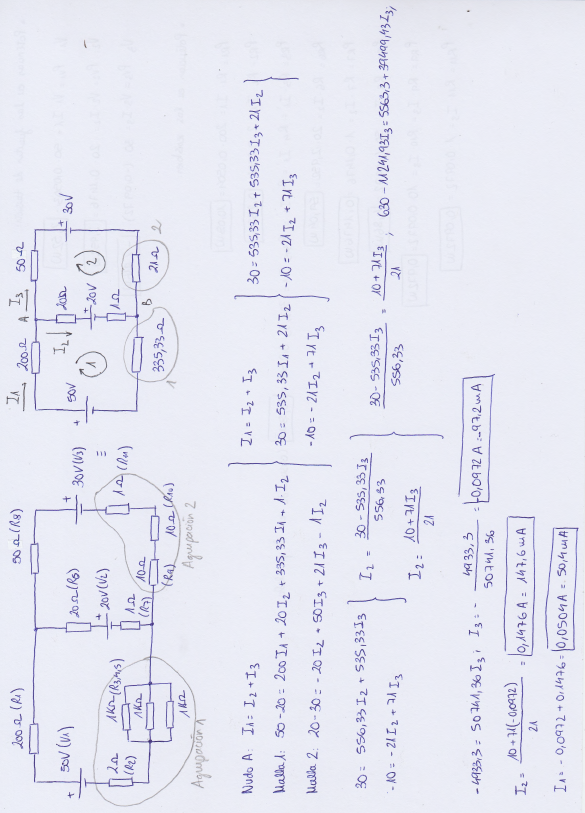 200Ω (R1)
50Ω (R8)
50V (V1)
20Ω (R6)
20V (V2)
1Ω (R7)
30V (V3)
1Ω (R11)
2Ω (R2)
1KΩ (R3,4,5)
1KΩ
1KΩ
10Ω
(R9)
10Ω (R10)
Agrupación 1
Agrupación 2
≡
I1
A
I3
200Ω
50Ω
I2
20Ω
20V
1Ω
50V
30V
1
2
B
335,33Ω
21Ω
1
2
Nudo A: I1 = I2 + I3
Malla 1: 50-20 = 200I1 + 20I2 + 335,33I1 + 1·I2
Malla 2: 20-30 = -20I2 + 50I3 + 21I3 - 1I2
I1 = I2 + I3
30 = 535,33I1 + 21I2
-10 = -21I2 + 71I3
30 = 535,33I2 + 535,33I3 + 21I2
-10 = -21I2 + 71I3
30 = 556,33I2 + 535,33I3
-10 = -21I2 + 71I3
I2 = 30 - 535,33I3 / 556,33
I2 = 10 + 71I3 / 21
30 - 535,33I3 / 556,33 = 10 + 71I3 / 21 ; 630 - 11241,93I3 = 5563,3 + 39499,43I3;
-4933,3 = 50741,36I3; I3 = - 4933,3 / 50741,36 = -0,0972A = -97,2mA
I2 = 10 + 71(-0,0972) / 21 = 0,1476A = 147,6mA
I1 = -0,0972 + 0,1476 = 0,0504A = 50,4mA